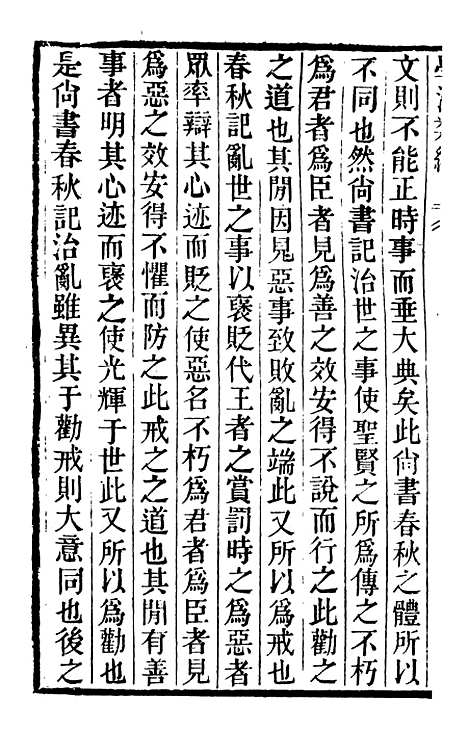 文則不能正時事而垂大典矣此尙書春秋之體所以
不同也然尙書記治世之事使聖賢之所爲傳之不朽
爲君者爲臣者見爲善之效安得不說而行之此勸之
之道也其閒因見惡事致敗亂之端此又所以爲戒也
春秋記亂世之事以襃貶代王者之賞罰時之爲惡者
眾率辯其心迹而貶之使惡名不朽爲君者爲臣者見
爲惡之效安得不懼而防之此戒之之道也其閒有善
事者明其心迹而襃之使光輝于世此又所以爲勸也
是尙書春秋記治亂雖異其于勸戒則大意同也後之